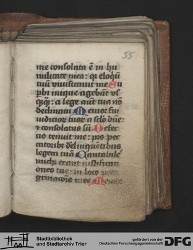 55
me consolata e in hu
militate mea: qr eloquiu
tuu viuificauit me Su
pbi inique agebant vs
qq: a lege aut tua no
declinaui Memor fui
iudicior tuor a sclo dne:
et consolatus su Defec
tio tenuit me: pro pec
catoribus delinquentibus
legem tua Cantabiles
michi erant iustificati
ones tue: in loco pere
grinacois mee
Stadtbibliothek
und Stadtarchiv Trier
gefördert von der
Deutschen Forschungsgemeinschaft
DFG